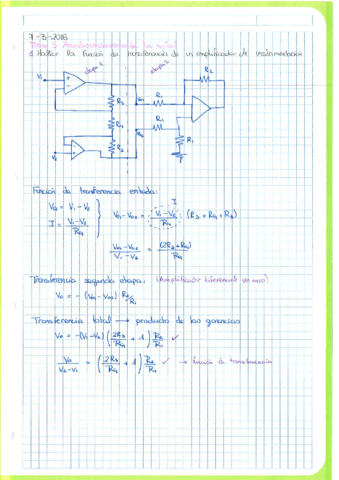 7-3-2018
Tema 3: Acondicionamiento de la señal
Hallar la función de transferencia de un amplificador de instrumentación
etapa 1
etapa 2
V1
R3
R4
R3
V2
R1
R2
R1
R1
Función de transferencia entrada:
VG = V1 - V2
I = V1 - V2 / RG
V01 - V02 = V1 - V2 / RG · (R3 + RG + R3)
I
V01 - V02 / V1 - V2 = (2R3 + RG) / RG
Transferencia segunda etapa: (Amplificador diferencial
V0 = - (V01 - V02) R2/R1
Transferencia total → producto de las ganancias
V0 = -(V1 - V2) (2R3/RG + 1) R2/R1 ✓
V0 / V2 - V1 = (2R3/RG + 1) R2/R1 ✓ → función de transferencia